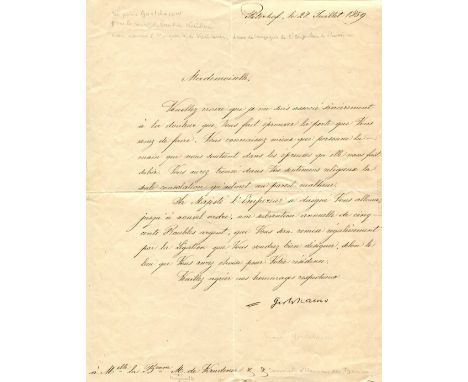 Peterhof, le 28 Juillet 1859
Mademoiselle,
Veuillez croire que je me suis associé sincèrement
à la douleur que Vous fait éprouver la perte que Vous
venez de faire. Vous connaissez mieux que personne la
main qui nous soutient dans les épreuves qu'elle nous fait
subir. Vous aurez trouvé dans Vos sentimens religieux la
seule consolation qu'admet un pareil malheur.
Sa Majesté l'Empereur a daigné Vous allouer,
jusqu'à nouvel ordre, une subvention annuelle de cinq
cents Roubles argent, qui Vous sera remise régulièrement
par la Légation que Vous voudrez bien désigner, selon le
lieu que Vous aurez choisi pour Votre résidence.
Veuillez agréer mes hommages respectueux
Gortchacow
à M.elle la B.onne M. de Krudener